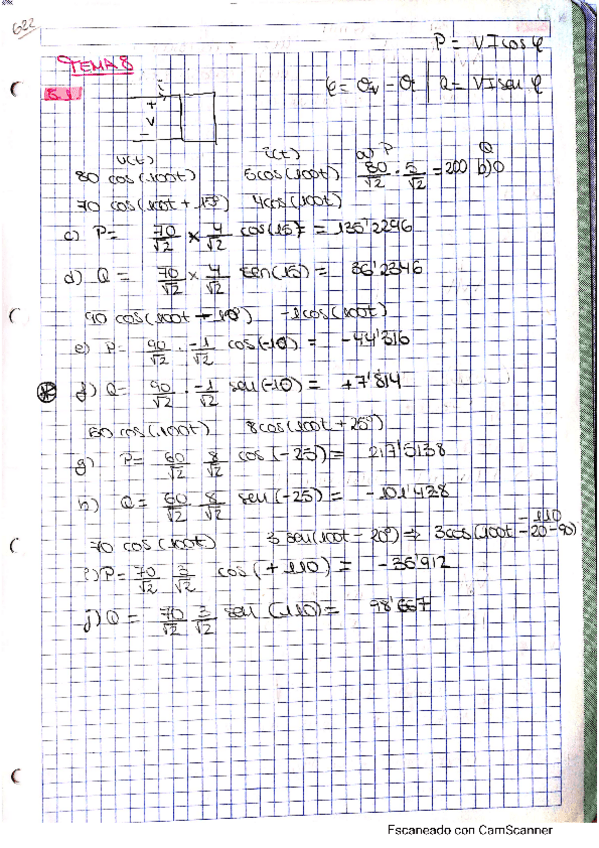 622
P = VI cos φ
TEMA 8
φ = θv - θi Q = VI sen φ
8.1
i
+
V
-
v(t) i(t) a) P Q
80 cos(100t) 5cos(100t) 80/√2 · 5/√2 = 200 b) 0
70 cos(100t + 15º) 4cos(100t)
c) P = 70/√2 × 4/√2 cos(15) = 135'2296
d) Q = 70/√2 × 4/√2 sen(15) = 36'2346
90 cos(100t - 10º) -1cos(100t)
e) P = 90/√2 · -1/√2 cos(-10) = -44'316
f) Q = 90/√2 · -1/√2 sen(-10) = +7'814
60 cos(100t) 8cos(100t + 25º)
g) P = 60/√2 8/√2 cos(-25) = 217'5138
h) Q = 60/√2 8/√2 sen(-25) = -101'428
-110
70 cos(100t) 3 sen(100t - 20º) ⇒ 3cos(100t - 20 - 90)
i) P = 70/√2 3/√2 cos(+110) = -35'912
j) Q = 70/√2 3/√2 sen(110) = 98'667
Escaneado con CamScanner